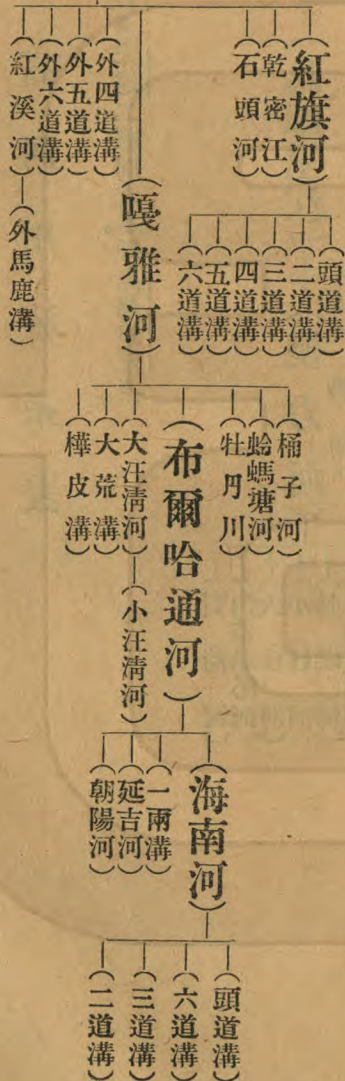 (紅旗河)
(乾密江)
(石頭河)
(頭道溝)
(二道溝)
(三道溝)
(四道溝)
(五道溝)
(六道溝)
(嘎雅河)
(外四道溝)
(外五道溝)
(外六道溝)
(紅溪河)
(外馬鹿溝)
(桶子河)
(蛤螞塘河)
(牡丹川)
(布爾哈通河)
(大汪清河)
(小汪清河)
(大荒溝)
(樺皮溝)
(海南河)
(一兩溝)
(延吉河)
(朝陽河)
(頭道溝)
(六道溝)
(三道溝)
(二道溝)